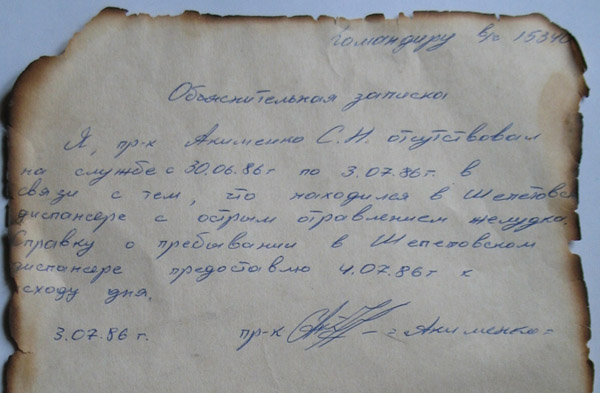 Командиру в/ч 15340
Объяснительная записка
Я, пр-к Акименко С.Н. отсутствовал
на службе с 30.06.86г по 3.07.86г. в
связи с тем, что находился в Шепетовс
диспансере с острым отравлением желудка.
Справку о пребывании в Шепетовском
диспансере предоставлю 4.07.86г к
исходу дня.
3.07.86 г. пр-к - Акименко -